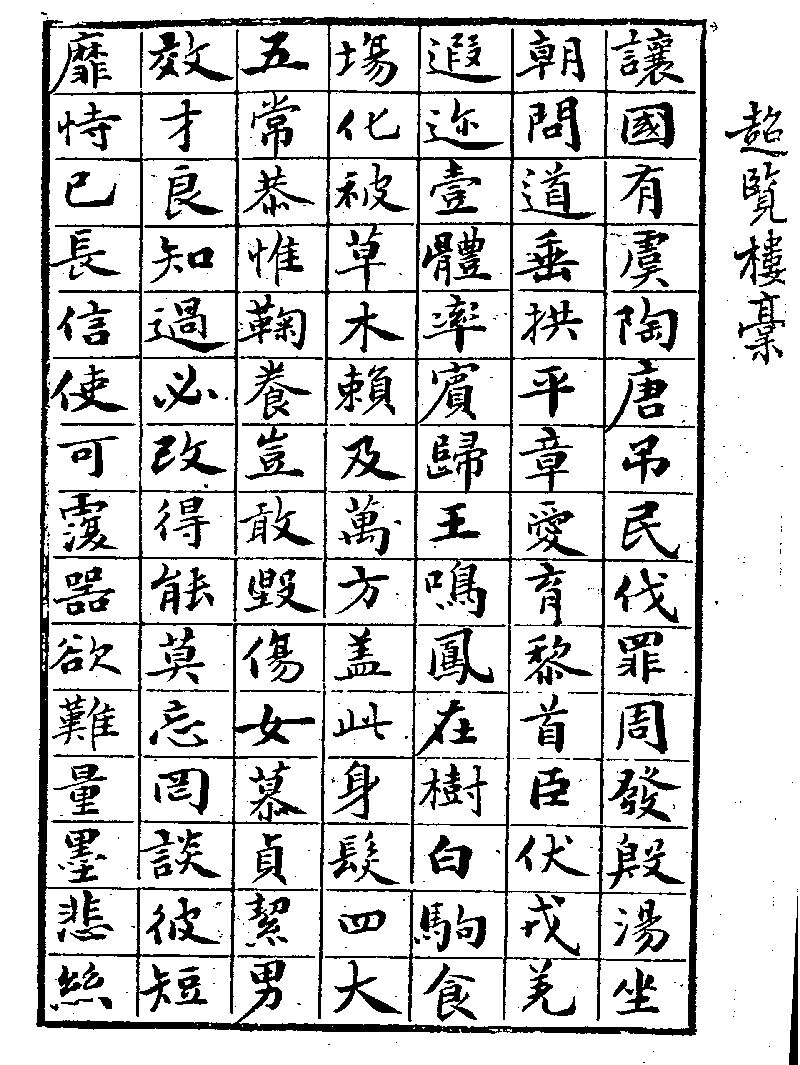 超覽樓稾
讓國有虞陶唐吊民伐罪周發殷湯坐
朝問道垂拱平章愛育黎首臣伏戎羌
遐迩壹體率賓歸王鳴鳳在樹白駒食
場化被草木賴及萬方盖此身髮四大
五常恭惟鞠養豈敢毀傷女慕貞絜男
效才良知過必改得能莫忘罔談彼短
靡恃已長信使可覆器欲難量墨悲絲